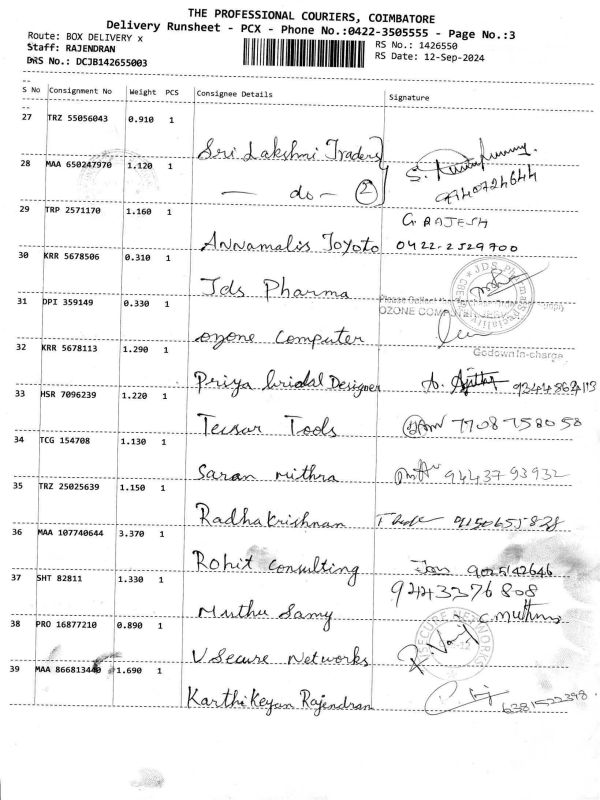 THE PROFESSIONAL COURIERS, COIMBATORE
Delivery Runsheet - PCX - Phone No.:0422-3505555 - Page No.:3
Route: BOX DELIVERY x
RS No.: 1426550
Staff: RAJENDRAN
RS Date: 12-Sep-2024
DRS No.: DCJB142655003
S No Consignment No Weight PCS Consignee Details Signature
27 TRZ 55056043 0.910 1
Sri Lakshmi Traders
28 MAA 650247970 1.120 1
— do — 2
9740724644
29 TRP 2571170 1.160 1
G. RAJESH
Annamalis Toyoto 0422-2529700
30 KRR 5678506 0.310 1
Jds Pharma
31 DPI 359149 0.330 1
OZONE COMPUTER SERV
ozone computer
Godown In-charge
32 KRR 5678113 1.290 1
Priya bridal Designer
33 HSR 7096239 1.220 1
Tecsar Tools 7708758058
34 TCG 154708 1.130 1
Saran mithra 9443793932
35 TRZ 25025639 1.150 1
Radhakrishnan
36 MAA 107740644 3.370 1
Rohit consulting 9025142646
37 SHT 82811 1.330 1
9443376808
Muthu Samy C. muthu
38 PRO 16877210 0.890 1
SECURE NETWORKS
V Secure Networks
39 MAA 866813440 1.690 1
Karthikeyan Rajendran 6381522398